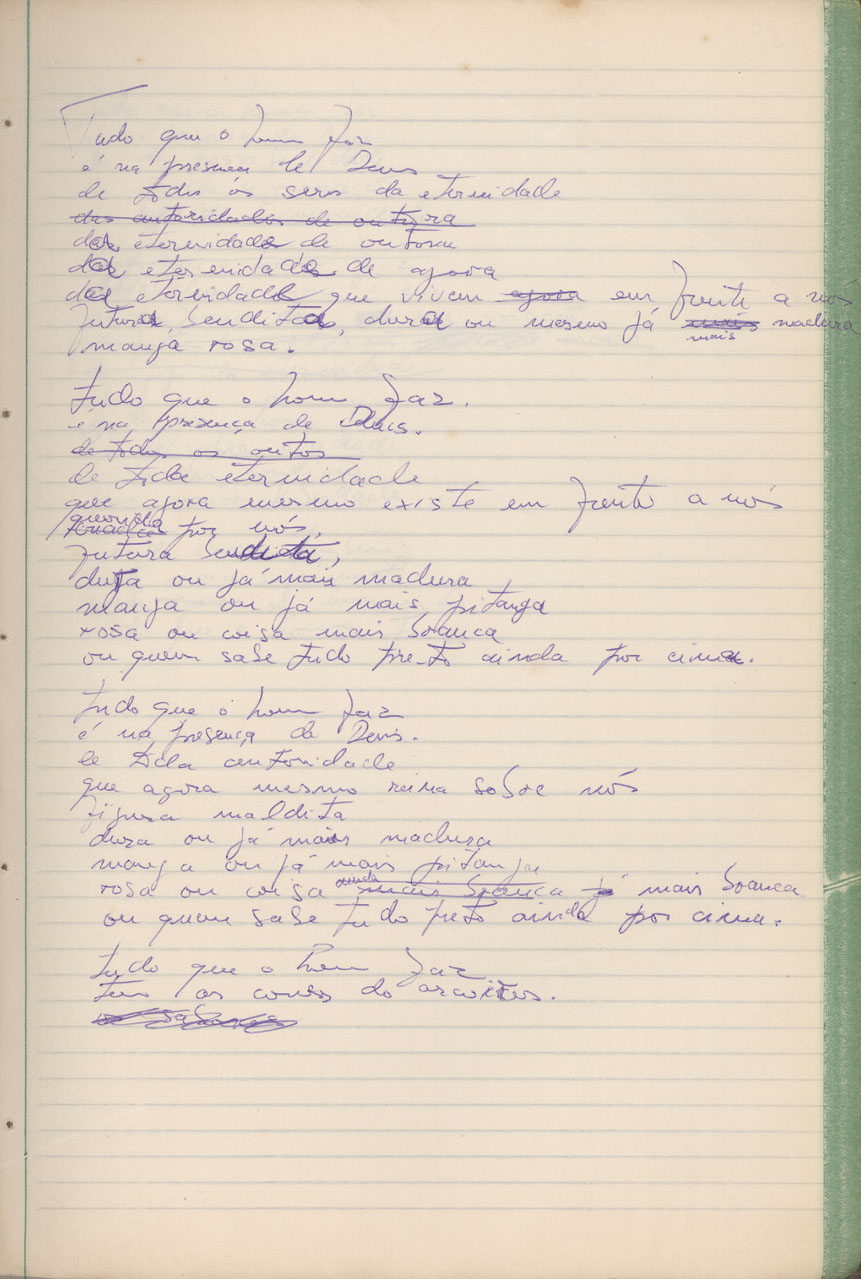 Tudo que o homem faz
é na presença de Deus
de todos os seres da eternidade
das autoridades de outrora
das eternidades de outrora
das eternidades de agora
das eternidades que vivem agora em frente a nós
futura, bendita, dura ou mesmo já mais madura
mais
manga rosa.
tudo que o homem faz.
é na presença de Deus.
de todos os outros
de toda eternidade
que agora mesmo existe em frente a nós
por nós,
futura bendita,
dura ou já mais madura
manga ou já mais pitanga
rosa ou coisa mais branca
ou quem sabe tudo preto ainda por cima.
tudo que o homem faz
é na presença de Deus.
de toda autoridade
que agora mesmo reina sobre nós
figura maldita
dura ou já mais madura
manga ou já mais pitanga
ainda
rosa ou coisa mais branca já mais branca
ou quem sabe tudo preto ainda por cima.
tudo que o homem faz
tem as cores do arco